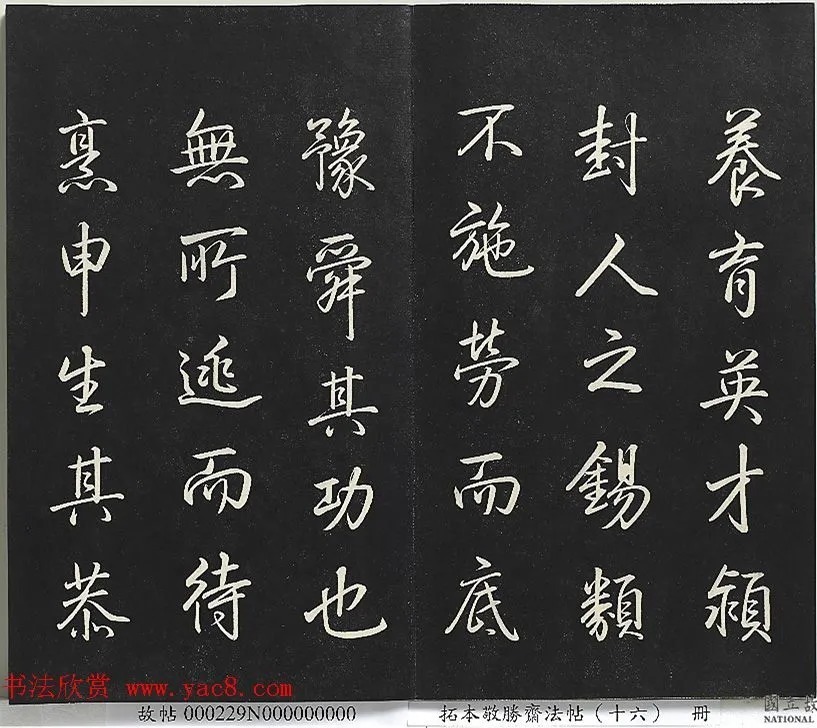 養育英才潁
封人之錫類
不施勞而底
豫舜其功也
無所逃而待
烹申生其恭
书法欣赏 www.yac8.com
故帖000229N000000000
拓本敬勝齋法帖（十六） 冊
國立故
NATIONAL